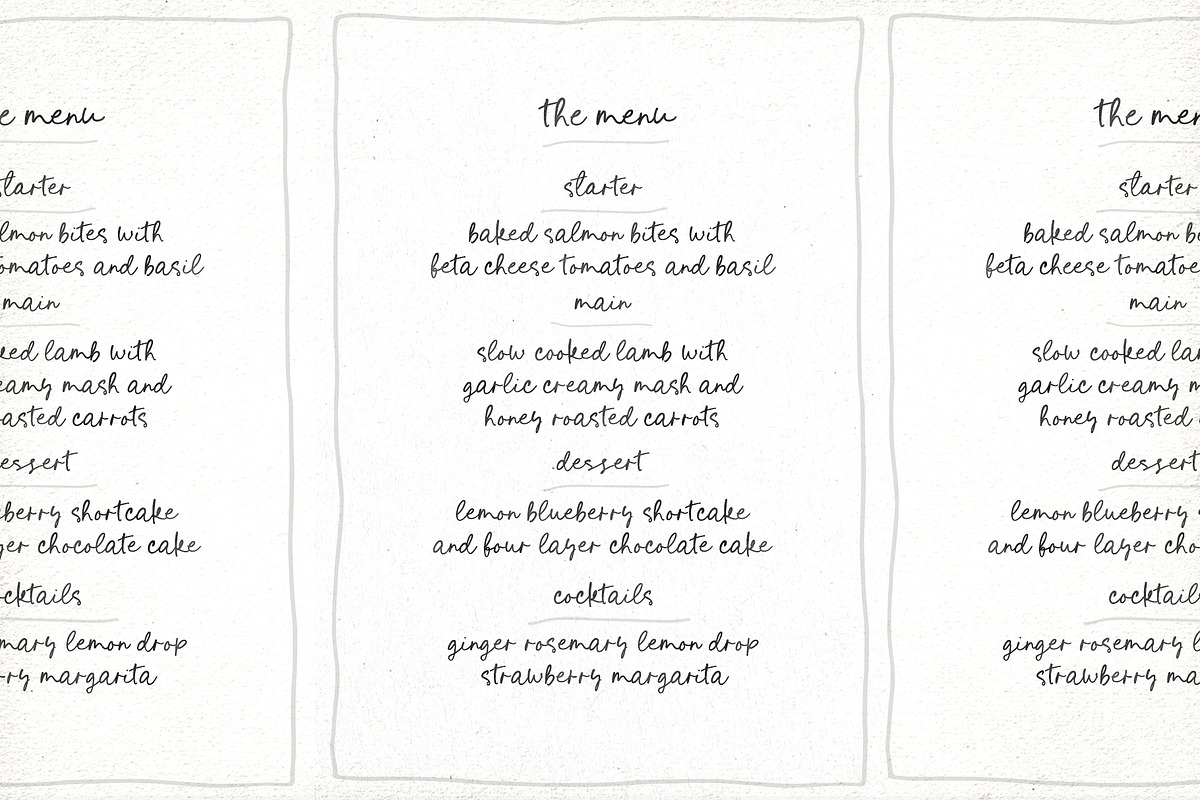 e menu
starter
lmon bites with
omatoes and basil
main
ked lamb with
eamy mash and
asted carrots
essert
eberry shortcake
yer chocolate cake
ocktails
mary lemon drop
rry margarita
the menu
starter
baked salmon bites with
feta cheese tomatoes and basil
main
slow cooked lamb with
garlic creamy mash and
honey roasted carrots
dessert
lemon blueberry shortcake
and four layer chocolate cake
cocktails
ginger rosemary lemon drop
strawberry margarita
the men
starter
baked salmon bi
feta cheese tomatoe
main
slow cooked lam
garlic creamy m
honey roasted c
dessert
lemon blueberry s
and four layer cho
cocktails
ginger rosemary l
strawberry ma